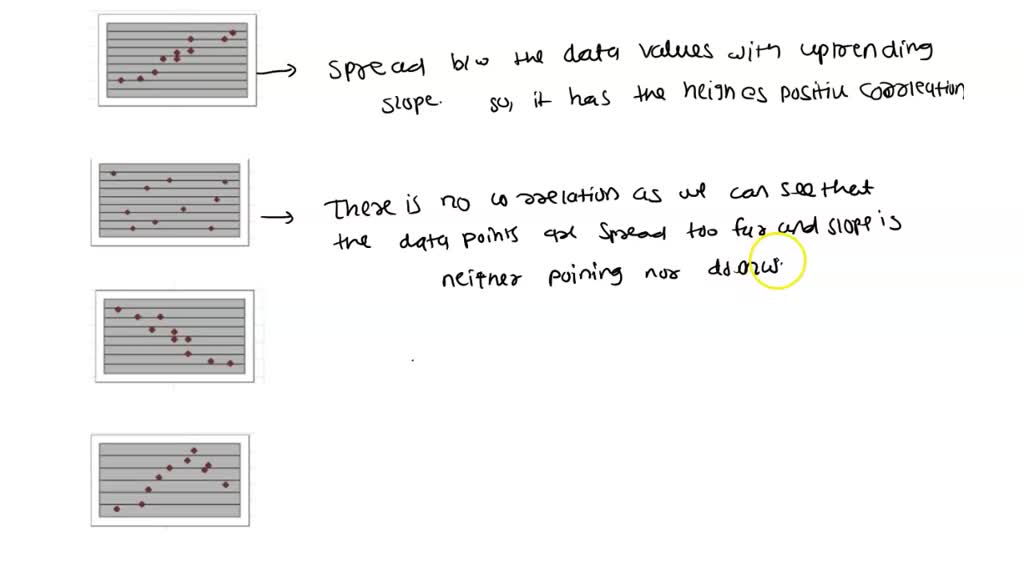 spread b/w the data values with uptrending
slope. so, it has the heighes positiv correlation
There is no correlation as we can see that
the data points are spread too far and slope is
neither poining nor